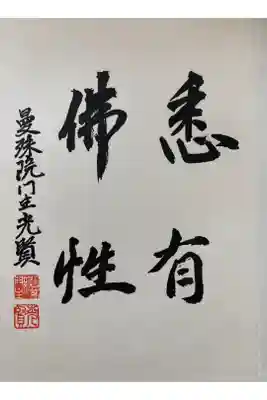 悉有
佛性
曼殊院門主光賢